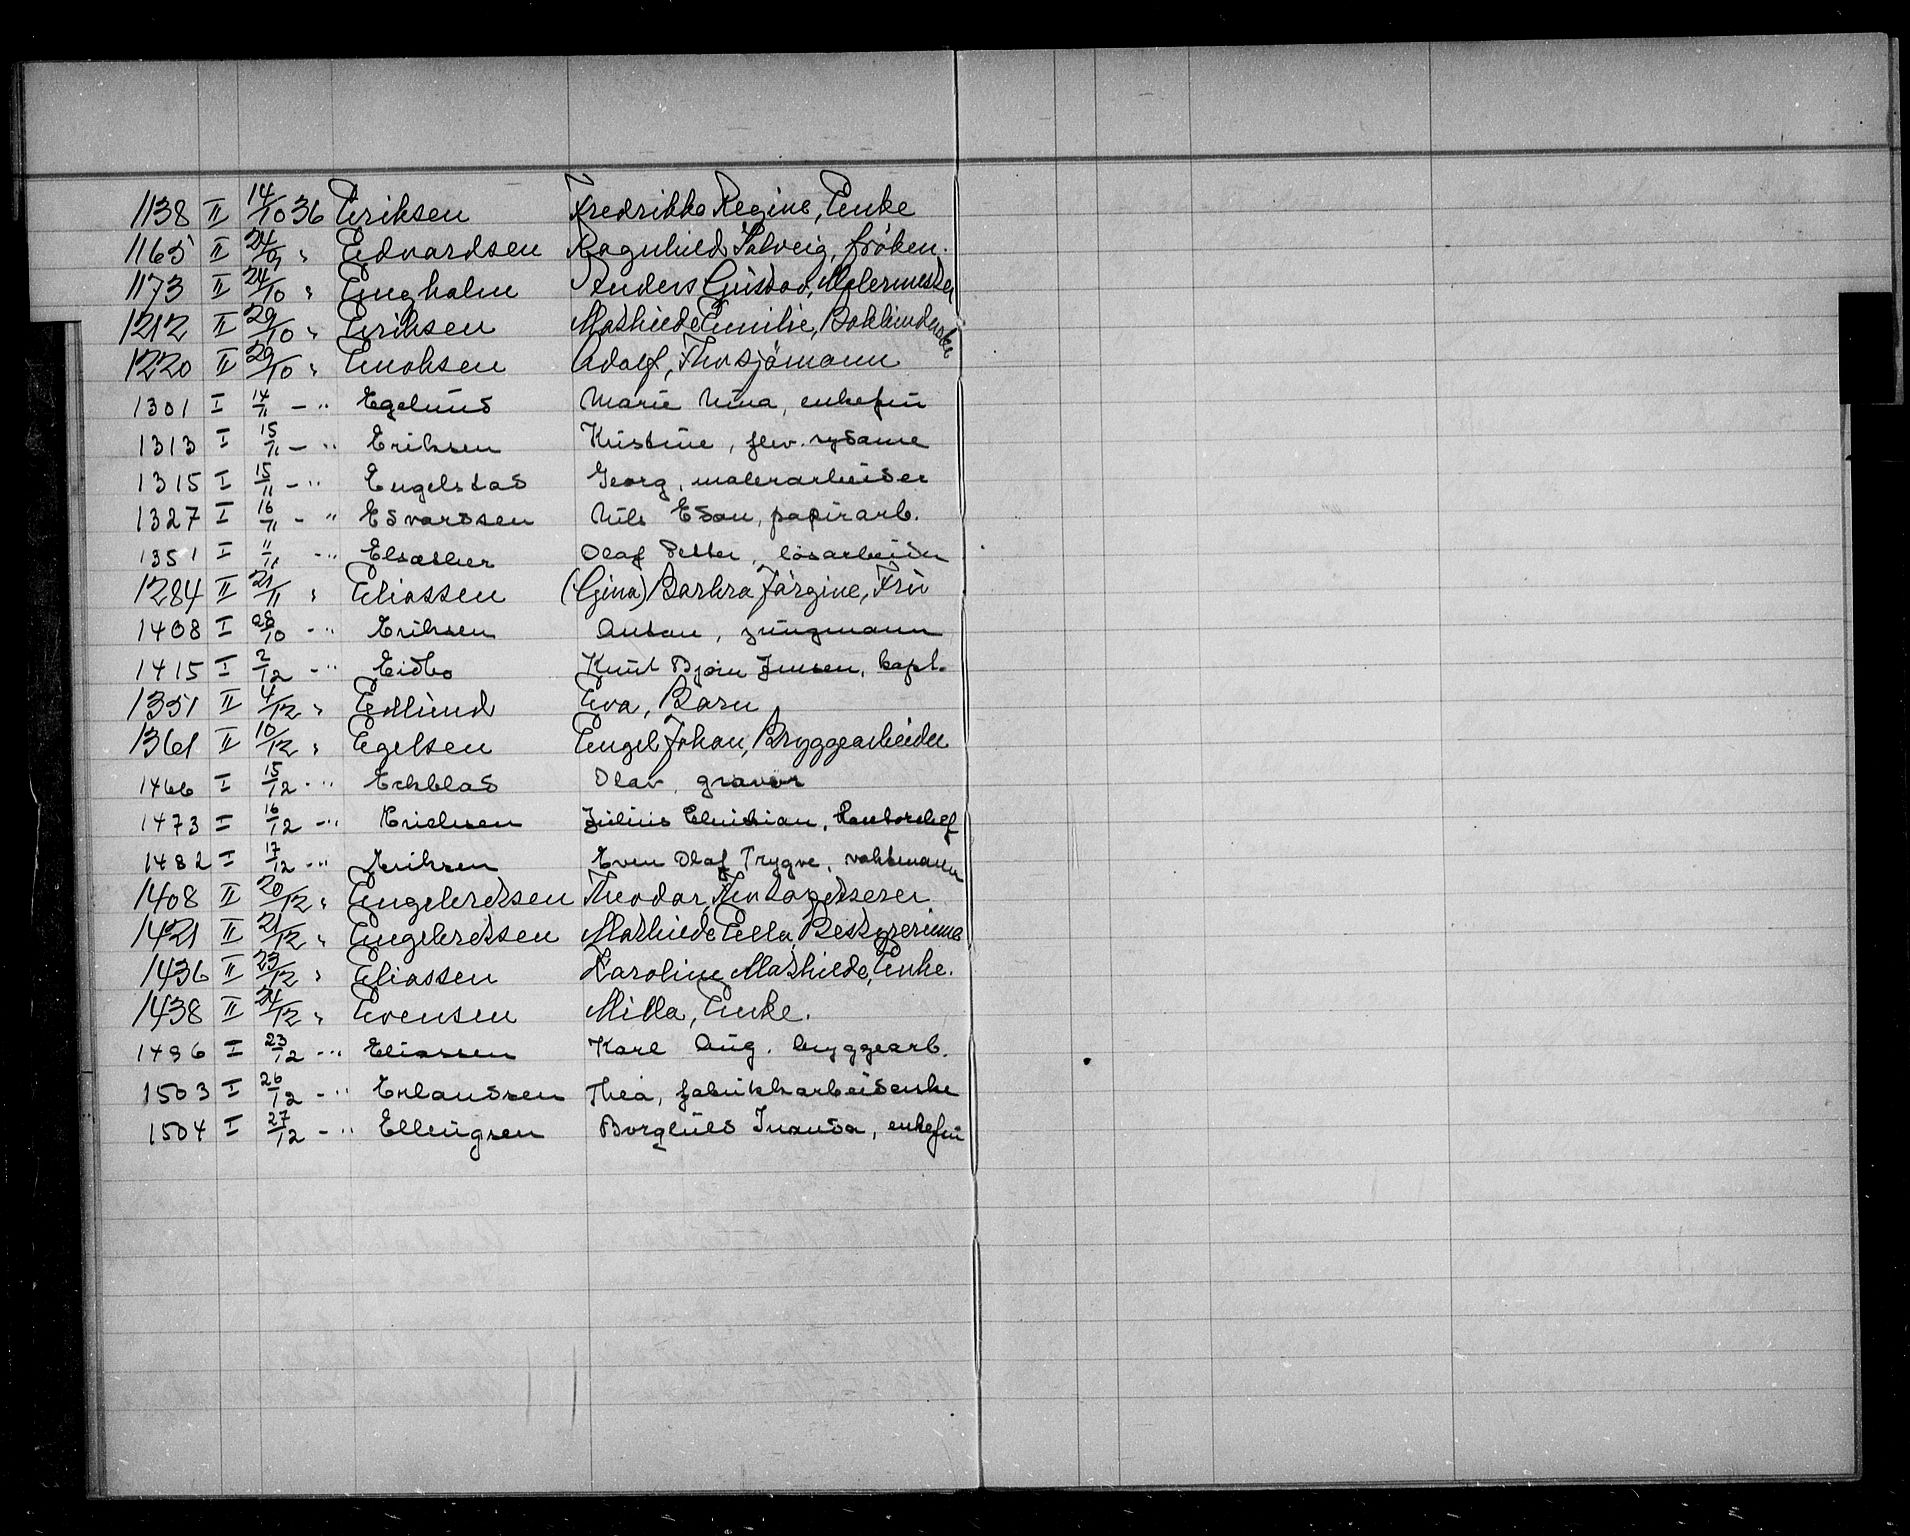 1138 II 14/10 36 Eriksen Fredrikke Regine, Enke
1165 II 24/9 " Edvardsen Ragnhild Solveig, frøken.
1173 II 24/10 " Engholm Anders Gustav, Malermester
1212 II 29/10 " Eriksen Mathilde Emilie, Bokbinderske
1220 II 29/10 " Enoksen Adolf, Fhv sjømann
1301 I 14/11 - " Egelund Marie Nina, enkefru
1313 I 15/11 - " Eriksen Kristine, fhv. sydame
1315 I 15/11 - " Engelstad Georg, malerarbeider
1327 I 16/11 - " Edvardsen Nils Edon, papirarb.
1351 I 11/11 - " Elsæther Olaf Petter, løsarbeider
1284 II 21/11 " Eliassen (Gina) Barbra Jørgine, Fru
1408 I 28/10 - " Eriksen Anton, jungmann
1415 I 2/12 - " Eidbo Knut Bjørn Jensen, kapt.
1351 II 4/12 " Edlund Eva, Barn
1361 II 10/12 " Egelsen Engel Johan, Bryggearbeider
1466 I 15/12 - " Ekblad Olav, gravør
1473 I 16/12 - " Erichsen Julius Christian, Kontorchef
1482 I 17/12 - " Eriksen Even Olaf Trygve, vaktmann
1408 II 20/12 " Engebretsen Theodor, Fhv Tapetserer
1421 II 21/12 " Engebretsen Mathilde Ella, Bestyrerinne
1436 II 23/12 " Eliassen Karoline Mathilde, Enke.
1438 II 24/12 " Evensen Milla, Enke.
1496 I 23/12 - " Eliassen Karl Aug. bryggearb.
1503 I 26/12 - " Erlandsen Thea, fabrikkarbeiderske
1504 I 27/12 - " Ellingsen Borghild Inanda, enkefru